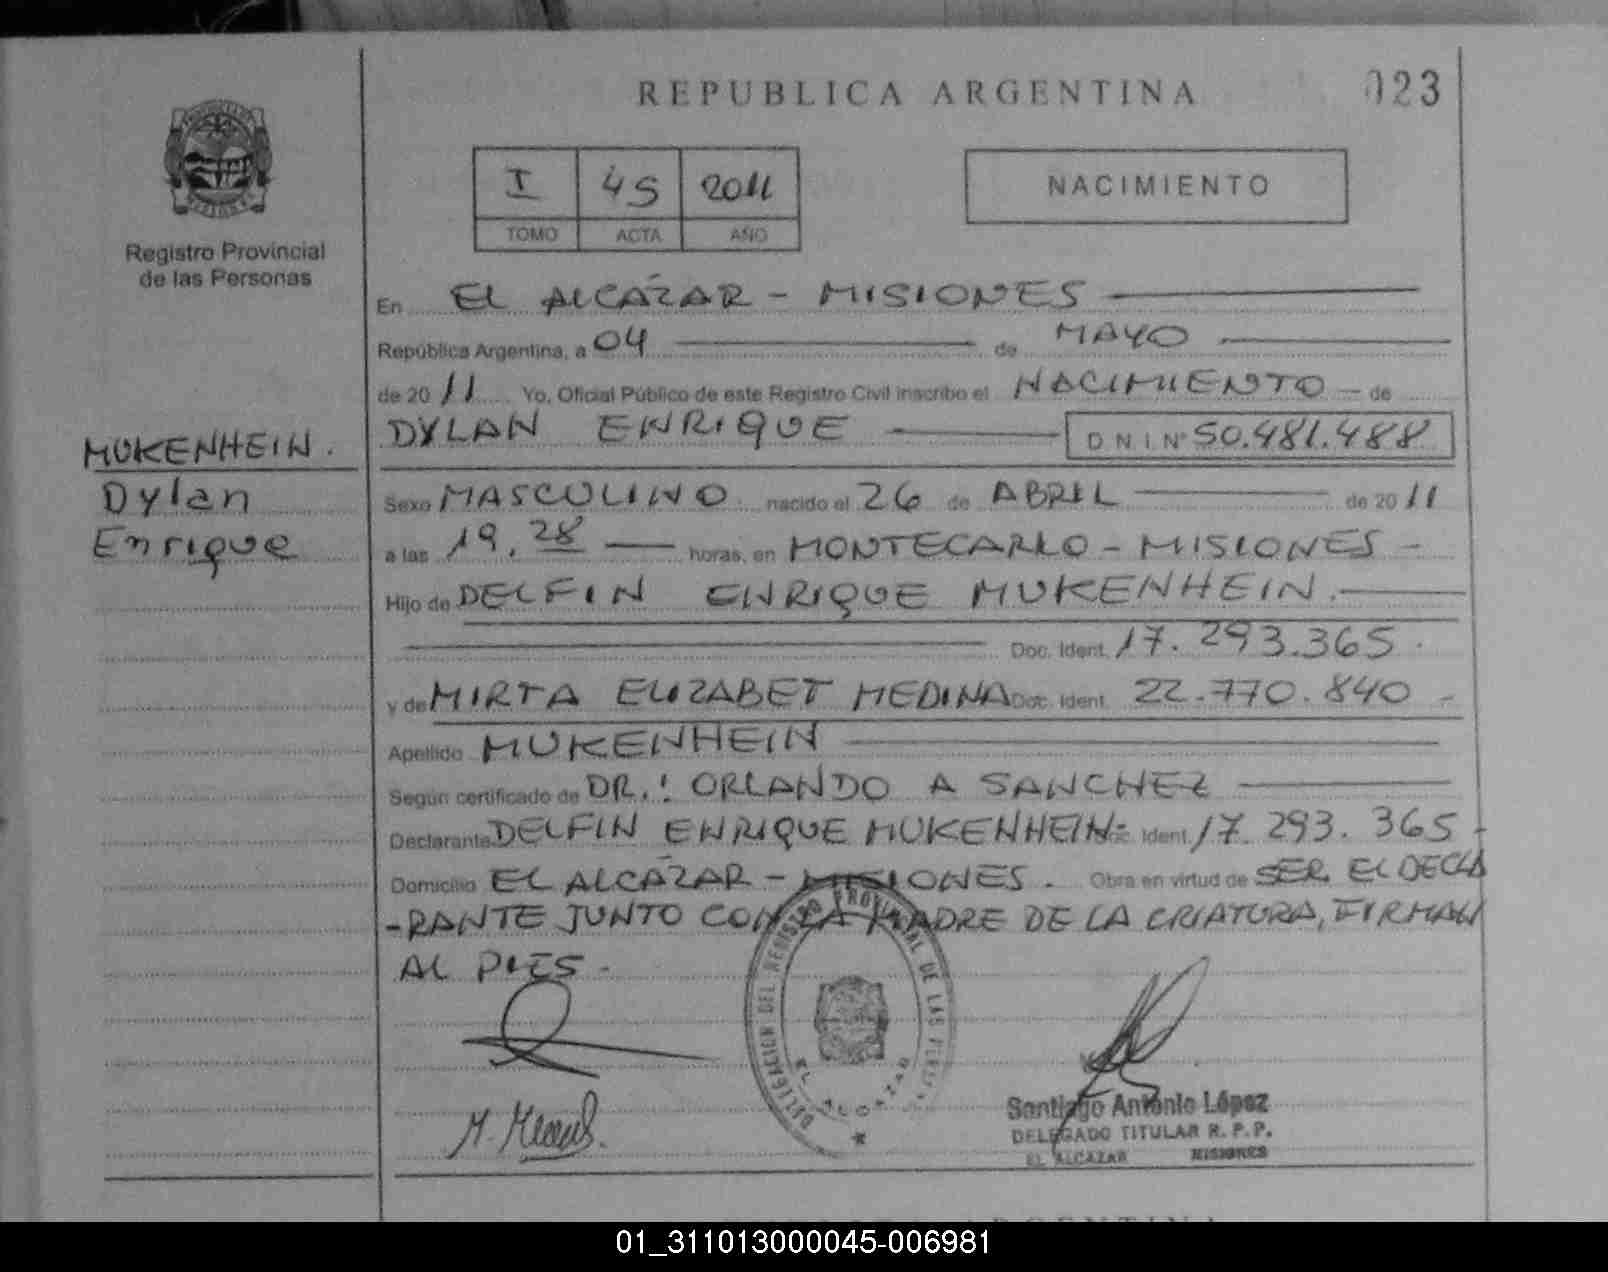 REPUBLICA ARGENTINA
023
I 45 2011
TOMO ACTA AÑO
NACIMIENTO
Registro Provincial
de las Personas
En EL ALCAZAR - MISIONES
República Argentina, a 04 de MAYO
de 2011 Yo, Oficial Público de este Registro Civil inscribo el NACIMIENTO - de
DYLAN ENRIQUE D.N.I.Nº 50.481.488
MUKENHEIN.
Dylan
Enrique
Sexo MASCULINO nacido el 26 de ABRIL de 2011
a las 19,28 horas, en MONTECARLO - MISIONES -
Hijo de DELFIN ENRIQUE MUKENHEIN.
Doc. Ident. 17.293.365.
y de MIRTA ELIZABET MEDINA Doc. Ident. 22.770.840 -
Apellido MUKENHEIN
Según certificado de DR.: ORLANDO A SANCHEZ
Declarante DELFIN ENRIQUE MUKENHEIN Doc. Ident. 17.293.365-
Domicilio EL ALCAZAR - MISIONES. Obra en virtud de SER EL DECLA
-RANTE JUNTO CON LA MADRE DE LA CRIATURA, FIRMAN
AL PIES.
DELEGACION DEL REGISTRO PROVINCIAL DE LAS PERS
EL ALCAZAR
Santiago Antonio López
DELEGADO TITULAR R. P. P.
EL ALCAZAR MISIONES
01_311013000045-006981